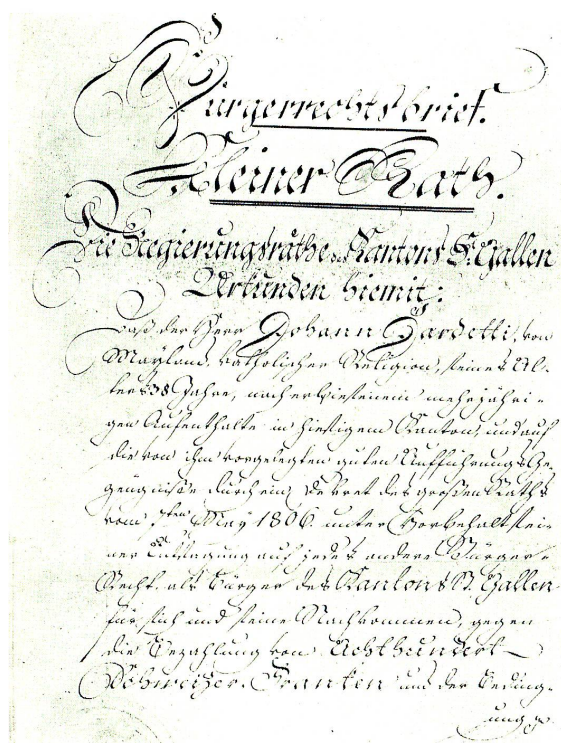 Bürgerrechtsbrief.
Kleiner Rath.
Die Regierungsräthe des Kantons St. Gallen
Urkunden hiemit:
Daß der Herr Johann Gardetti, von
Mayland, katholischer Religion, seines Al-
ters 38 Jahre, nach erwiesenem mehrjähri-
gen Aufenthalte in hiesigem Kanton, und auf
die von ihm vorgelegten guten Aufführungs Ze-
zeugnisse durch ein Dekret des großen Raths
vom 7ten May 1806 unter Vorbehalt sei-
ner Entsagung auf jedes andere Bürger-
Recht als Bürger des Kantons St. Gallen
für sich und seine Nachkommen, gegen
die Bezahlung von Achthundert
Schweizer-Franken und der Beding-
ung